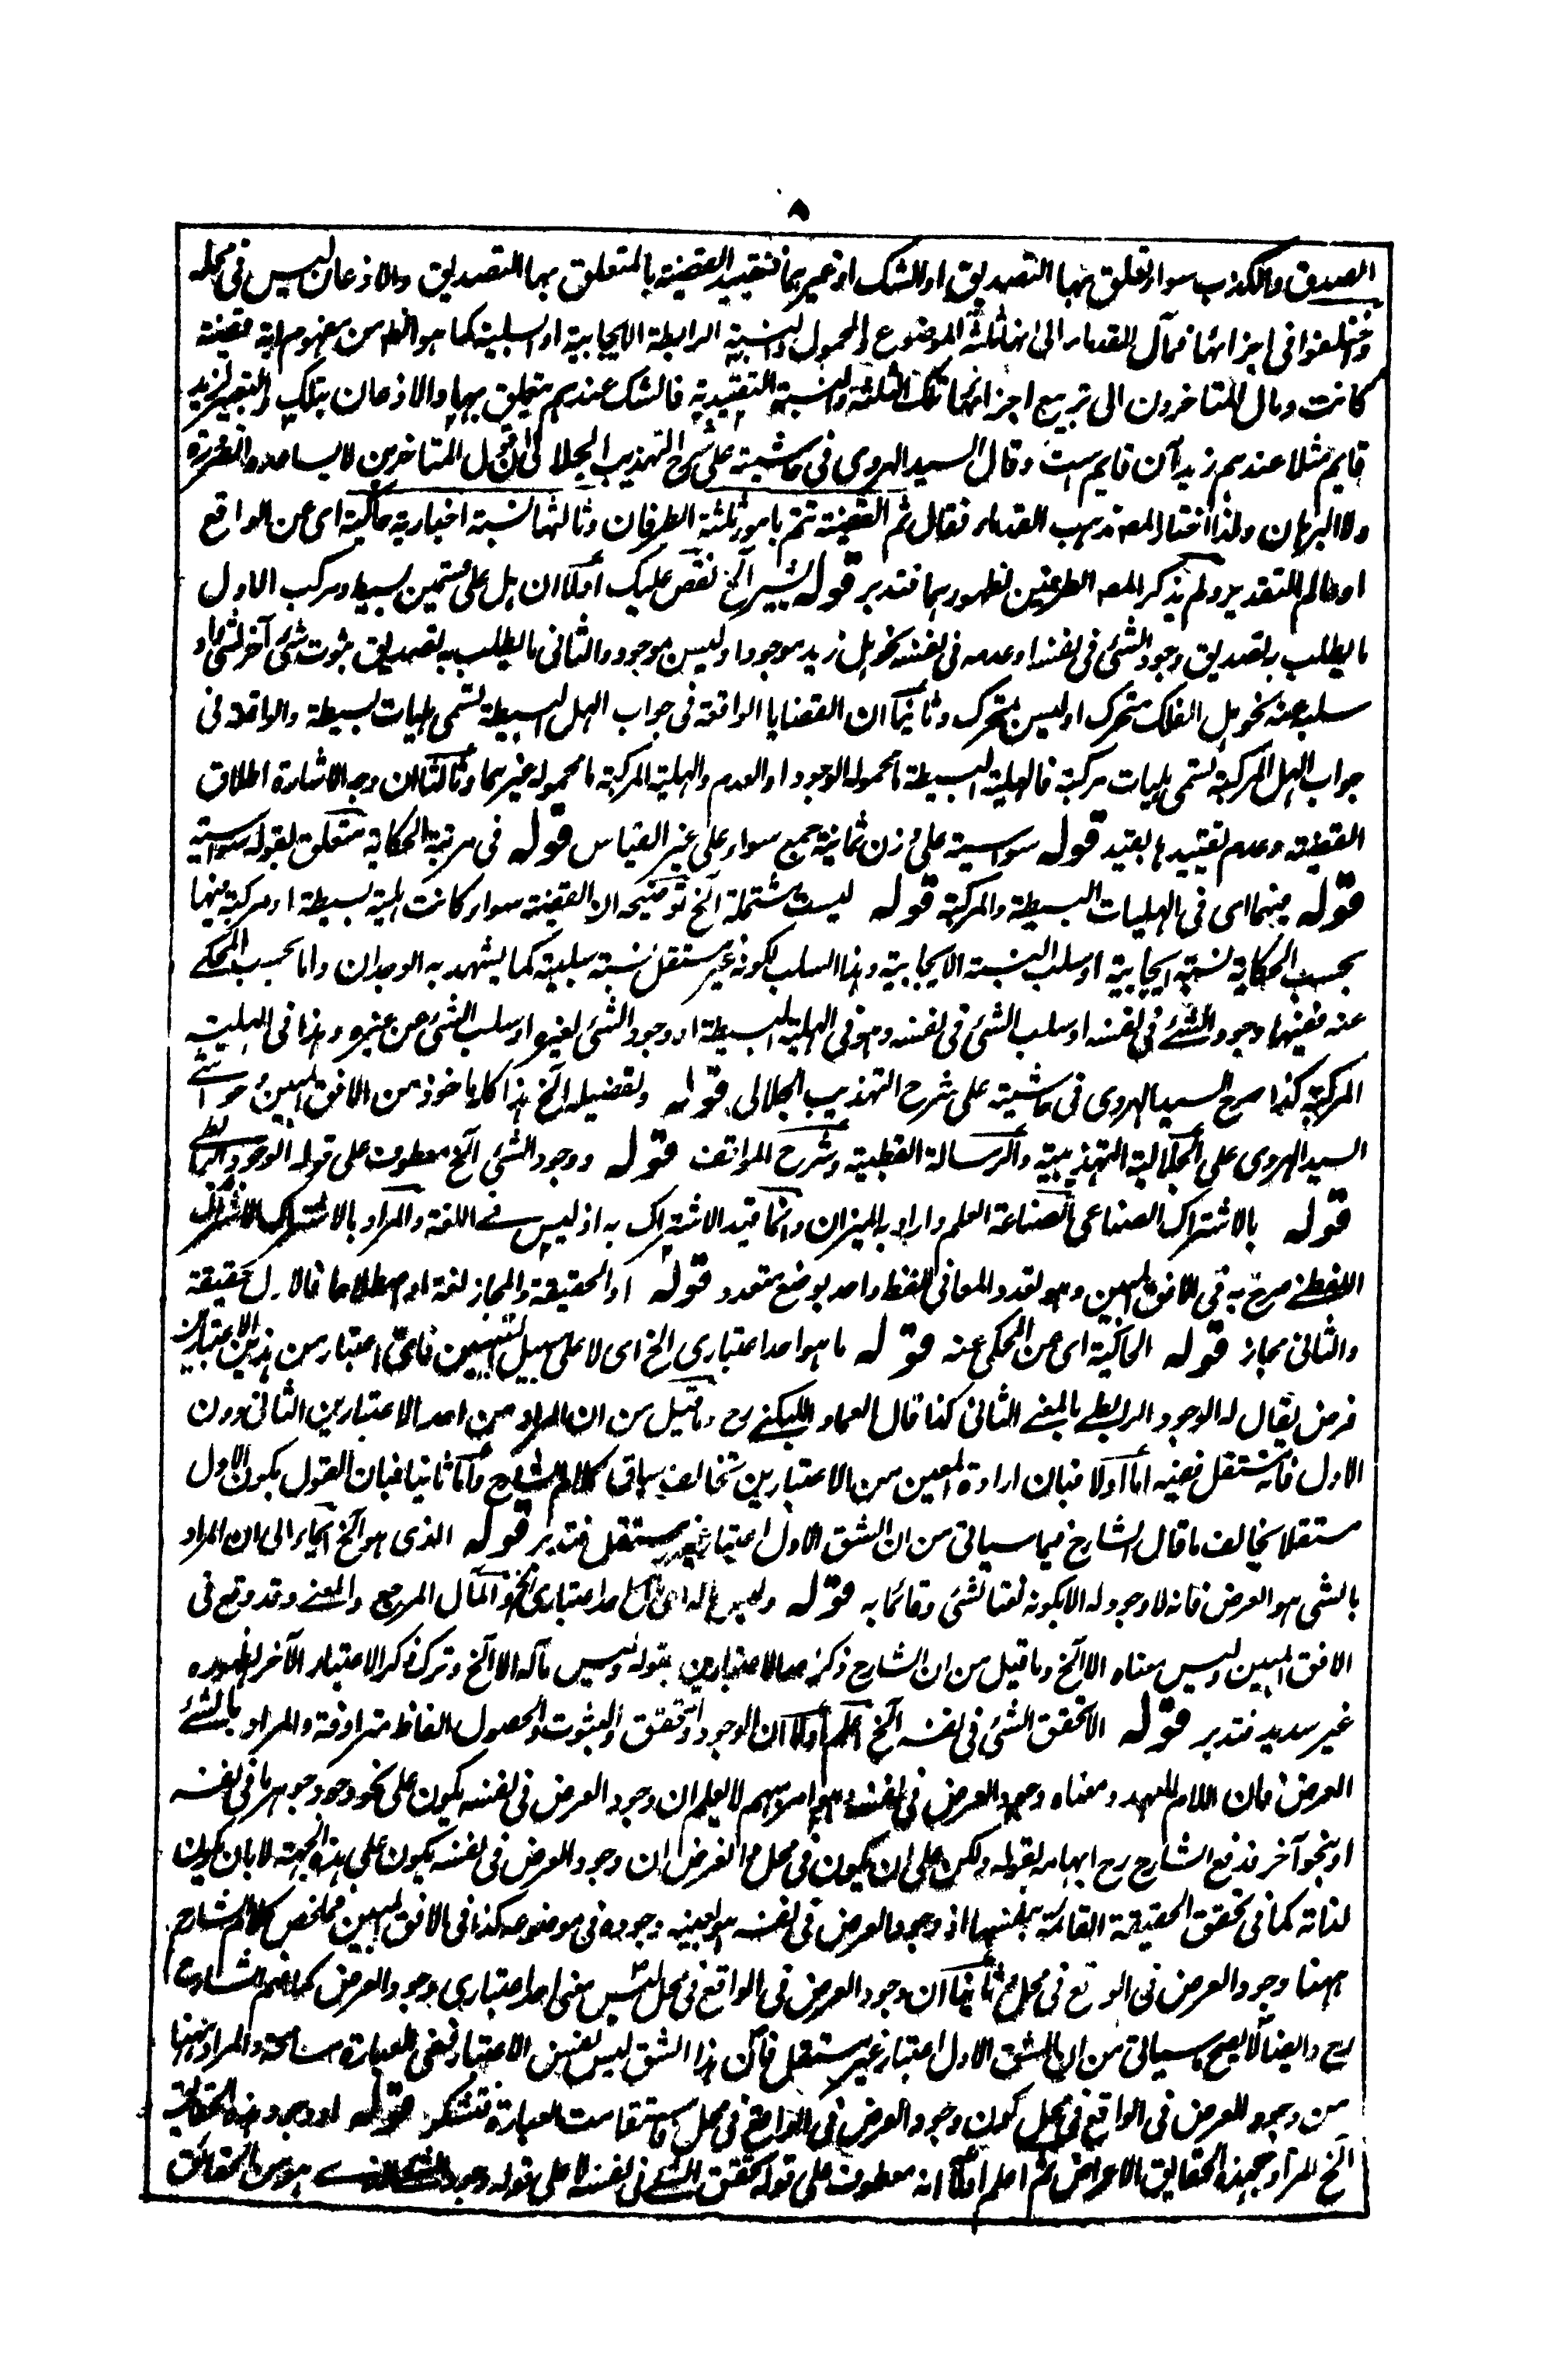 ٨
الصدق والكذب سواء تعلق بها التصديق او الشك او غيرهما فتقييد القضية بالمتعلق بها التصديق والاذعان ليس فى محله
واختلفوا فى اجزائها فمآل القدماء الى انها ثلثة الموضوع والمحمول والنسبة الرابطة الايجابية او السلبية كما هو الظ من مفهوم اية قضية
كانت ومال المتاخرون الى تربيع اجزائها تلك الثلثة والنسبة التقييدية فالشك عندهم يتعلق بها والاذعان بتلك والتعبير لزيد
قايم مثلا عندهم زيد آن قايم ست وقال السيد الهروى فى حاشيته على شرح التهذيب الجلالى ان قول المتاخرين لا يساعده الضرورة
ولا البرهان ولذا اختار المصـ مذهب القدماء فقال ثم القضية تتم بامور ثلثة الطرفان وثالثها نسبة اخبارية حاكية اى عن الواقع
او عالم التقدير ولم يذكر المصـ الطرفين لظهورهما فتدبر قوله يشير آلخ نقص عليك اولا ان هل على قسمين بسيط ومركب الاول
ما يطلب به تصديق وجود الشئ فى نفسه او عدمه فى نفسه نحو هل زيد موجود او ليس موجود والثانى ما يطلب به تصديق ثبوت شئ آخر لشئ او
سلبه عنه نحو هل الفلك متحرك او ليس بمتحرك وثانيا ان القضايا الواقعة فى جواب الهل البسيطة تسمى هليات بسيطة والواقعة فى
جواب الهل المركبة تسمى هليات مركبة فالهلية البسيطة ما محموله الوجود او العدم والهلية المركبة ما محموله غيرهما وثالثا ان وجه الاشارة اطلاق
القضية وعدم تقييدها بقيد قوله سواسية على وزن ثمانية جمع سواء على غير القياس قوله فى مرتبة الحكاية متعلق بقوله سواسية
قوله منهما اى فى الهليات البسيطة والمركبة قوله ليست مشتملة آلخ توضيحه ان القضية سواء كانت هلية بسيطة او مركبة فيها
بحسب الحكاية نسبة ايجابية او سلب النسبة الايجابية وهذا السلب لكونه غير مستقل نسبة سلبية كما يشهد به الوجدان واما بحسب المحكى
عنه ففيها وجود الشئ فى نفسه او سلب الشئ فى نفسه وهو فى الهلية البسيطة او وجود الشئ لغيره او سلب الشئ عن غيره وهذا فى الهلية
المركبة كذا صرح السيد الهروى فى حاشيته على شرح التهذيب الجلالى قوله وتفصيله آلخ هذا كله ماخوذ من الافق المبين وحواشى
السيد الهروى على الجلالية التهذيبية والرسالة القطبية وشرح المواقف قوله ووجود الشئ آلخ معطوف على قوله الوجود الرابطى
قوله بالاشتراك الصناعى الصناعة العلم واراد به الميزان وانما قيد الاشتراك به اذ ليس فى اللغة والمراد بالاشتراك الاشتراك
اللفظى صرح به فى الافق المبين وهو تعدد المعانى للفظ واحد بوضع متعدد قوله او الحقيقة والمجاز لغة او اصطلاحا فالاول حقيقة
والثانى مجاز قوله الحاكية اى عن المحكى عنه قوله ما هو احد اعتبارى الخ اى لا على سبيل التعيين فاىّ اعتبار من هذين الاعتبارين
فرض يقال له الوجود الرابطى بالمعنى الثانى كذا قال العماد اللبكنى رح وما قيل من ان المراد من احد الاعتبارين الثانى دون
الاول فانه مستقل ففيه اما اولا فبان ارادة المعين من الاعتبارين تخالف سياق كلام الشارح واما ثانيا فبان القول بكون الاول
مستقلا يخالف ما قال الشارح فيما سياتى من ان الشق الاول اعتبار غير مستقل فتدبر قوله الذى هو آلخ ايماء الى ان المراد
بالشئ هو العرض فانه لا وجود له الا بكونه نعتا لشئ وقائما به قوله وليس ماله اى مآل احد اعتبارى آلخ والمآل المرجع والمعنى وقد وقع فى
الافق المبين وليس معناه الا آلخ وما قيل من ان الشارح ذكر احد الاعتبارين بقوله وليس مآله الا آلخ وترك ذكر الاعتبار الآخر لظهوره
غير سديد فتدبر قوله الا تحقق الشئ فى نفسه آلخ اعلم اولا ان الوجود والتحقق والثبوت والحصول الفاظ مترادفة والمراد بالشئ
العرض فان اللام للعهد ومعناه وجود العرض فى نفسه وهو امر مبهم لا يعلم ان وجود العرض فى نفسه يكون على نحو وجود جوهر ما فى نفسه
او بنحو آخر فدفع الشارح رح ابهامه بقوله ولكن على ان يكون فى محل والغرض ان وجود العرض فى نفسه يكون على هذه الجهة لا بان يكون
لذاته كما فى تحقق الحقيقة القائمة بنفسها اذ وجود العرض فى نفسه هو بعينه وجوده فى موضوعه كذا فى الافق المبين فملخص كلام الشارح
ههنا وجود العرض فى الواقع فى محل وثانيا ان وجود العرض فى الواقع فى محل ليس معنى احد اعتبارى وجود العرض كما زعم الشارح
رح وايضا لا يصح ما سياتى من ان الشق الاول اعتبار غير مستقل فان هذا الشق ليس نفس الاعتبار ففى العبارة مسامحة والمراد ههنا
من وجود العرض فى الواقع فى محل كون وجود العرض فى الواقع فى محل فاستقامت العبارة فتشكر قوله او وجود هذه الحقائق
آلخ المراد بهذه الحقايق الاعراض ثم اعلم اولا انه معطوف على قوله تحقق الشئ فى نفسه لا على قوله وجود الشئ الذى هو من الحقائق